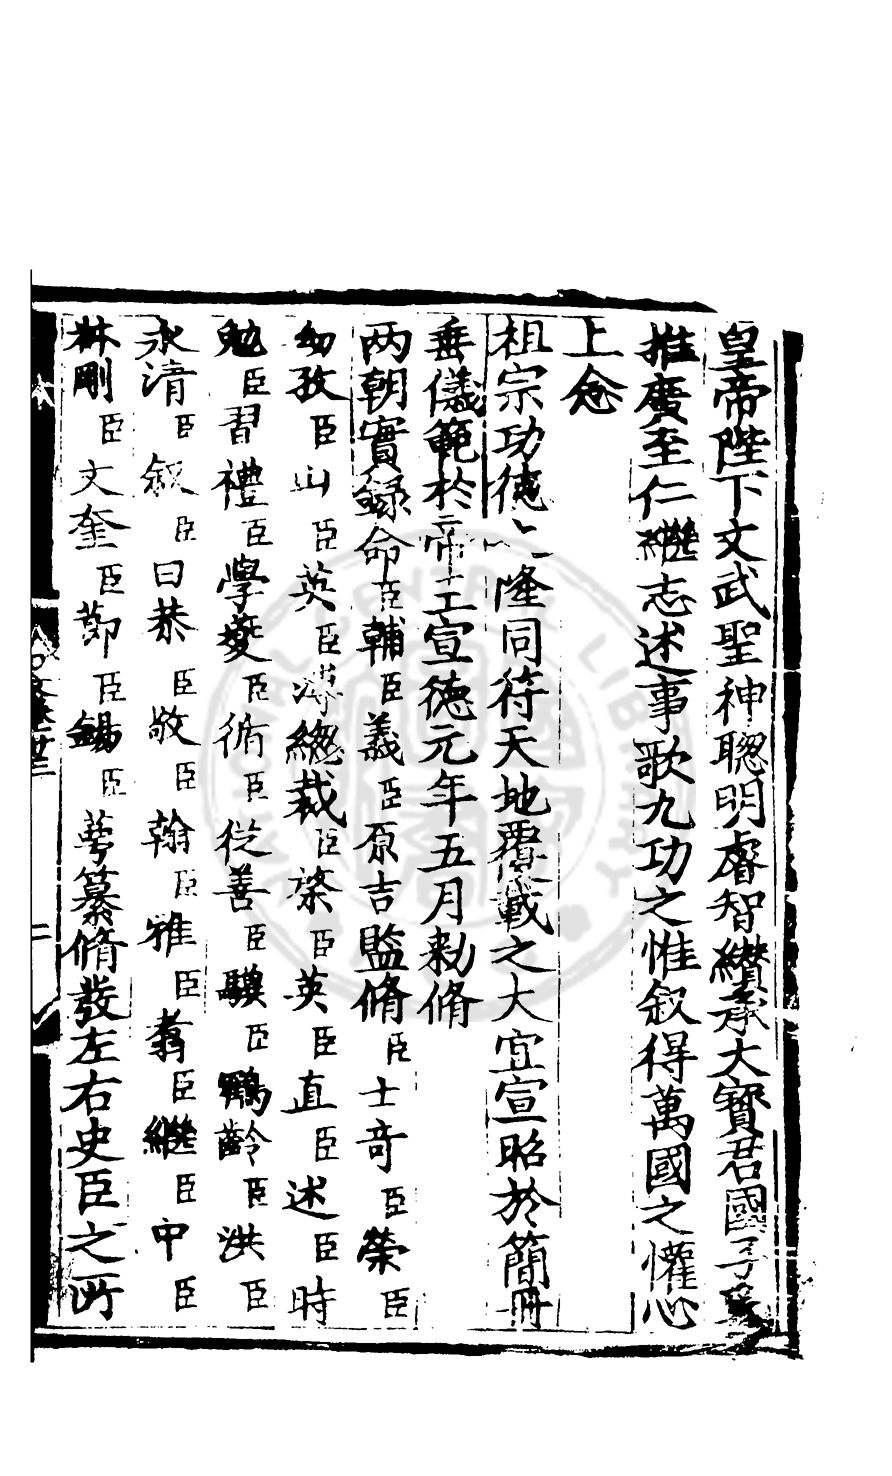 皇帝陛下文武聖神聰明睿智纘承大寶君國子
推廣至仁繼志述事歌九功之惟叙得萬國之懽心
上念
祖宗功德隆同符天地覆載之大宜宣昭於簡冊
垂儀範於帝王宣德元年五月勑脩
两朝實録命臣輔臣義臣原吉監脩臣士竒臣榮臣
幼孜臣山臣英臣溥總裁臣棨臣英臣直臣述臣時
勉臣習禮臣學夔臣循臣從善臣驥臣鶴齡臣洪臣
永清臣叙臣曰恭臣敬臣翰臣雅臣翥臣繼臣中臣
林剛臣文奎臣節臣錫臣萼纂脩發左右史臣之所